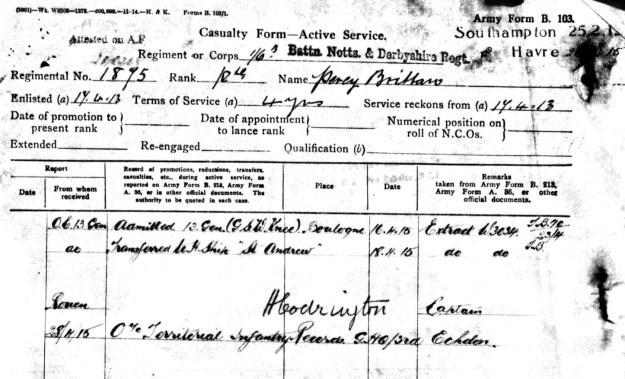 (5901)—Wt. W8206—1275.—500,000.—11-14.—K. & K. Forms B. 103/1.
Army Form B. 103.
Casualty Form—Active Service.
Southampton 25.2.1
Attested on A.F
Regiment or Corps 1/6th Battn. Notts. & Derbyshire Regt. Havre
Regimental No. 1875 Rank Pte Name Percy Brittain
Enlisted (a) 17.4.13 Terms of Service (a) 4 yrs Service reckons from (a) 17.4.13
Date of promotion to present rank
Date of appointment to lance rank
Numerical position on roll of N.C.Os.
Extended Re-engaged Qualification (b)
Report
Date
From whom received
Record of promotions, reductions, transfers, casualties, etc., during active service, as reported on Army Form B. 213, Army Form A. 36, or in other official documents. The authority to be quoted in each case.
Place
Date
Remarks
taken from Army Form B. 213, Army Form A. 36, or other official documents.
O.C. 13 Gen Admitted 13 Gen. (G.S.W. Knee) Boulogne 16.4.15 Extract
do Transferred to H. Ship "St Andrew" 18.4.15 do do
Rouen HCodrington Captain
O i/c Territorial Infantry Records G.HQ 3rd Echelon.